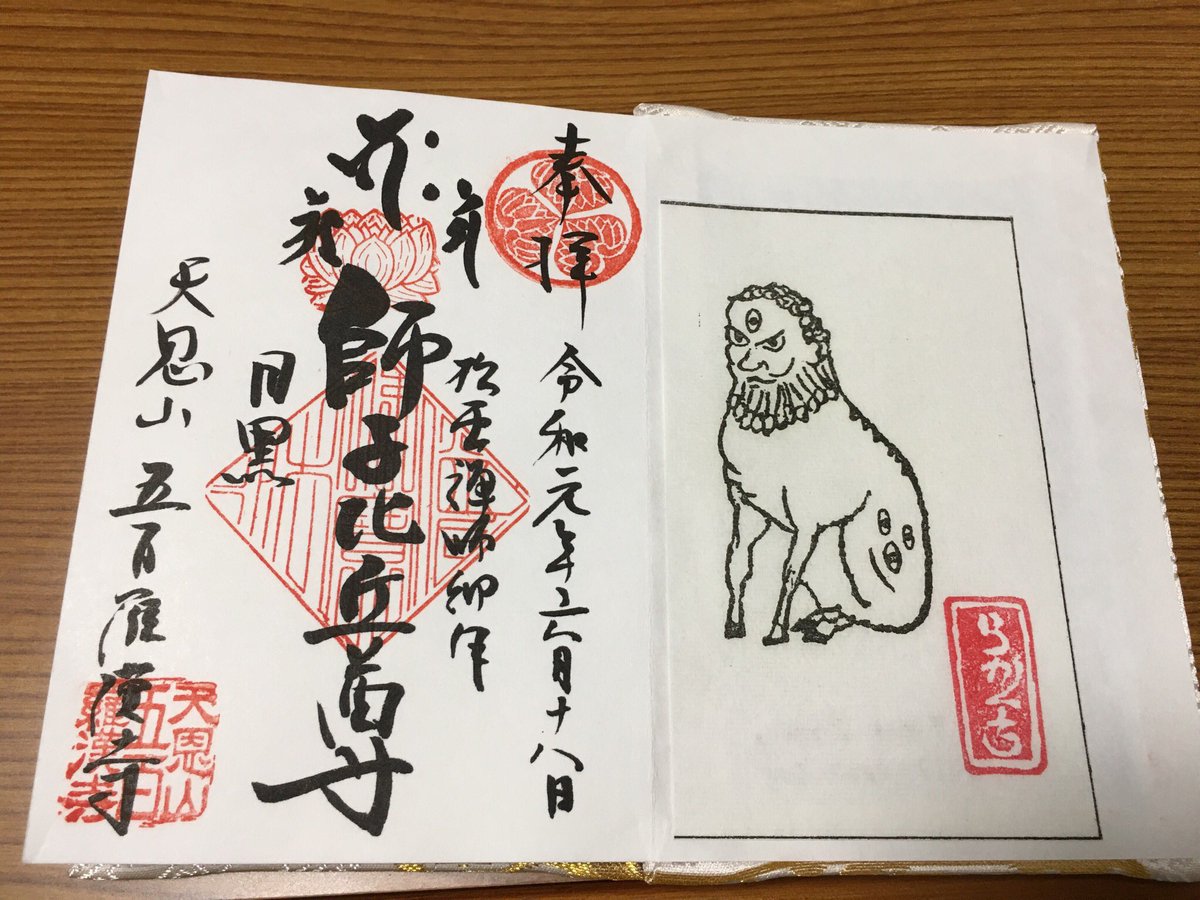 奉拝
令和元年六月十八日
松雲禅師御年
師子比丘尊
目黒
天恩山 五百羅漢寺
天恩山
五百
羅漢寺
らかん寺